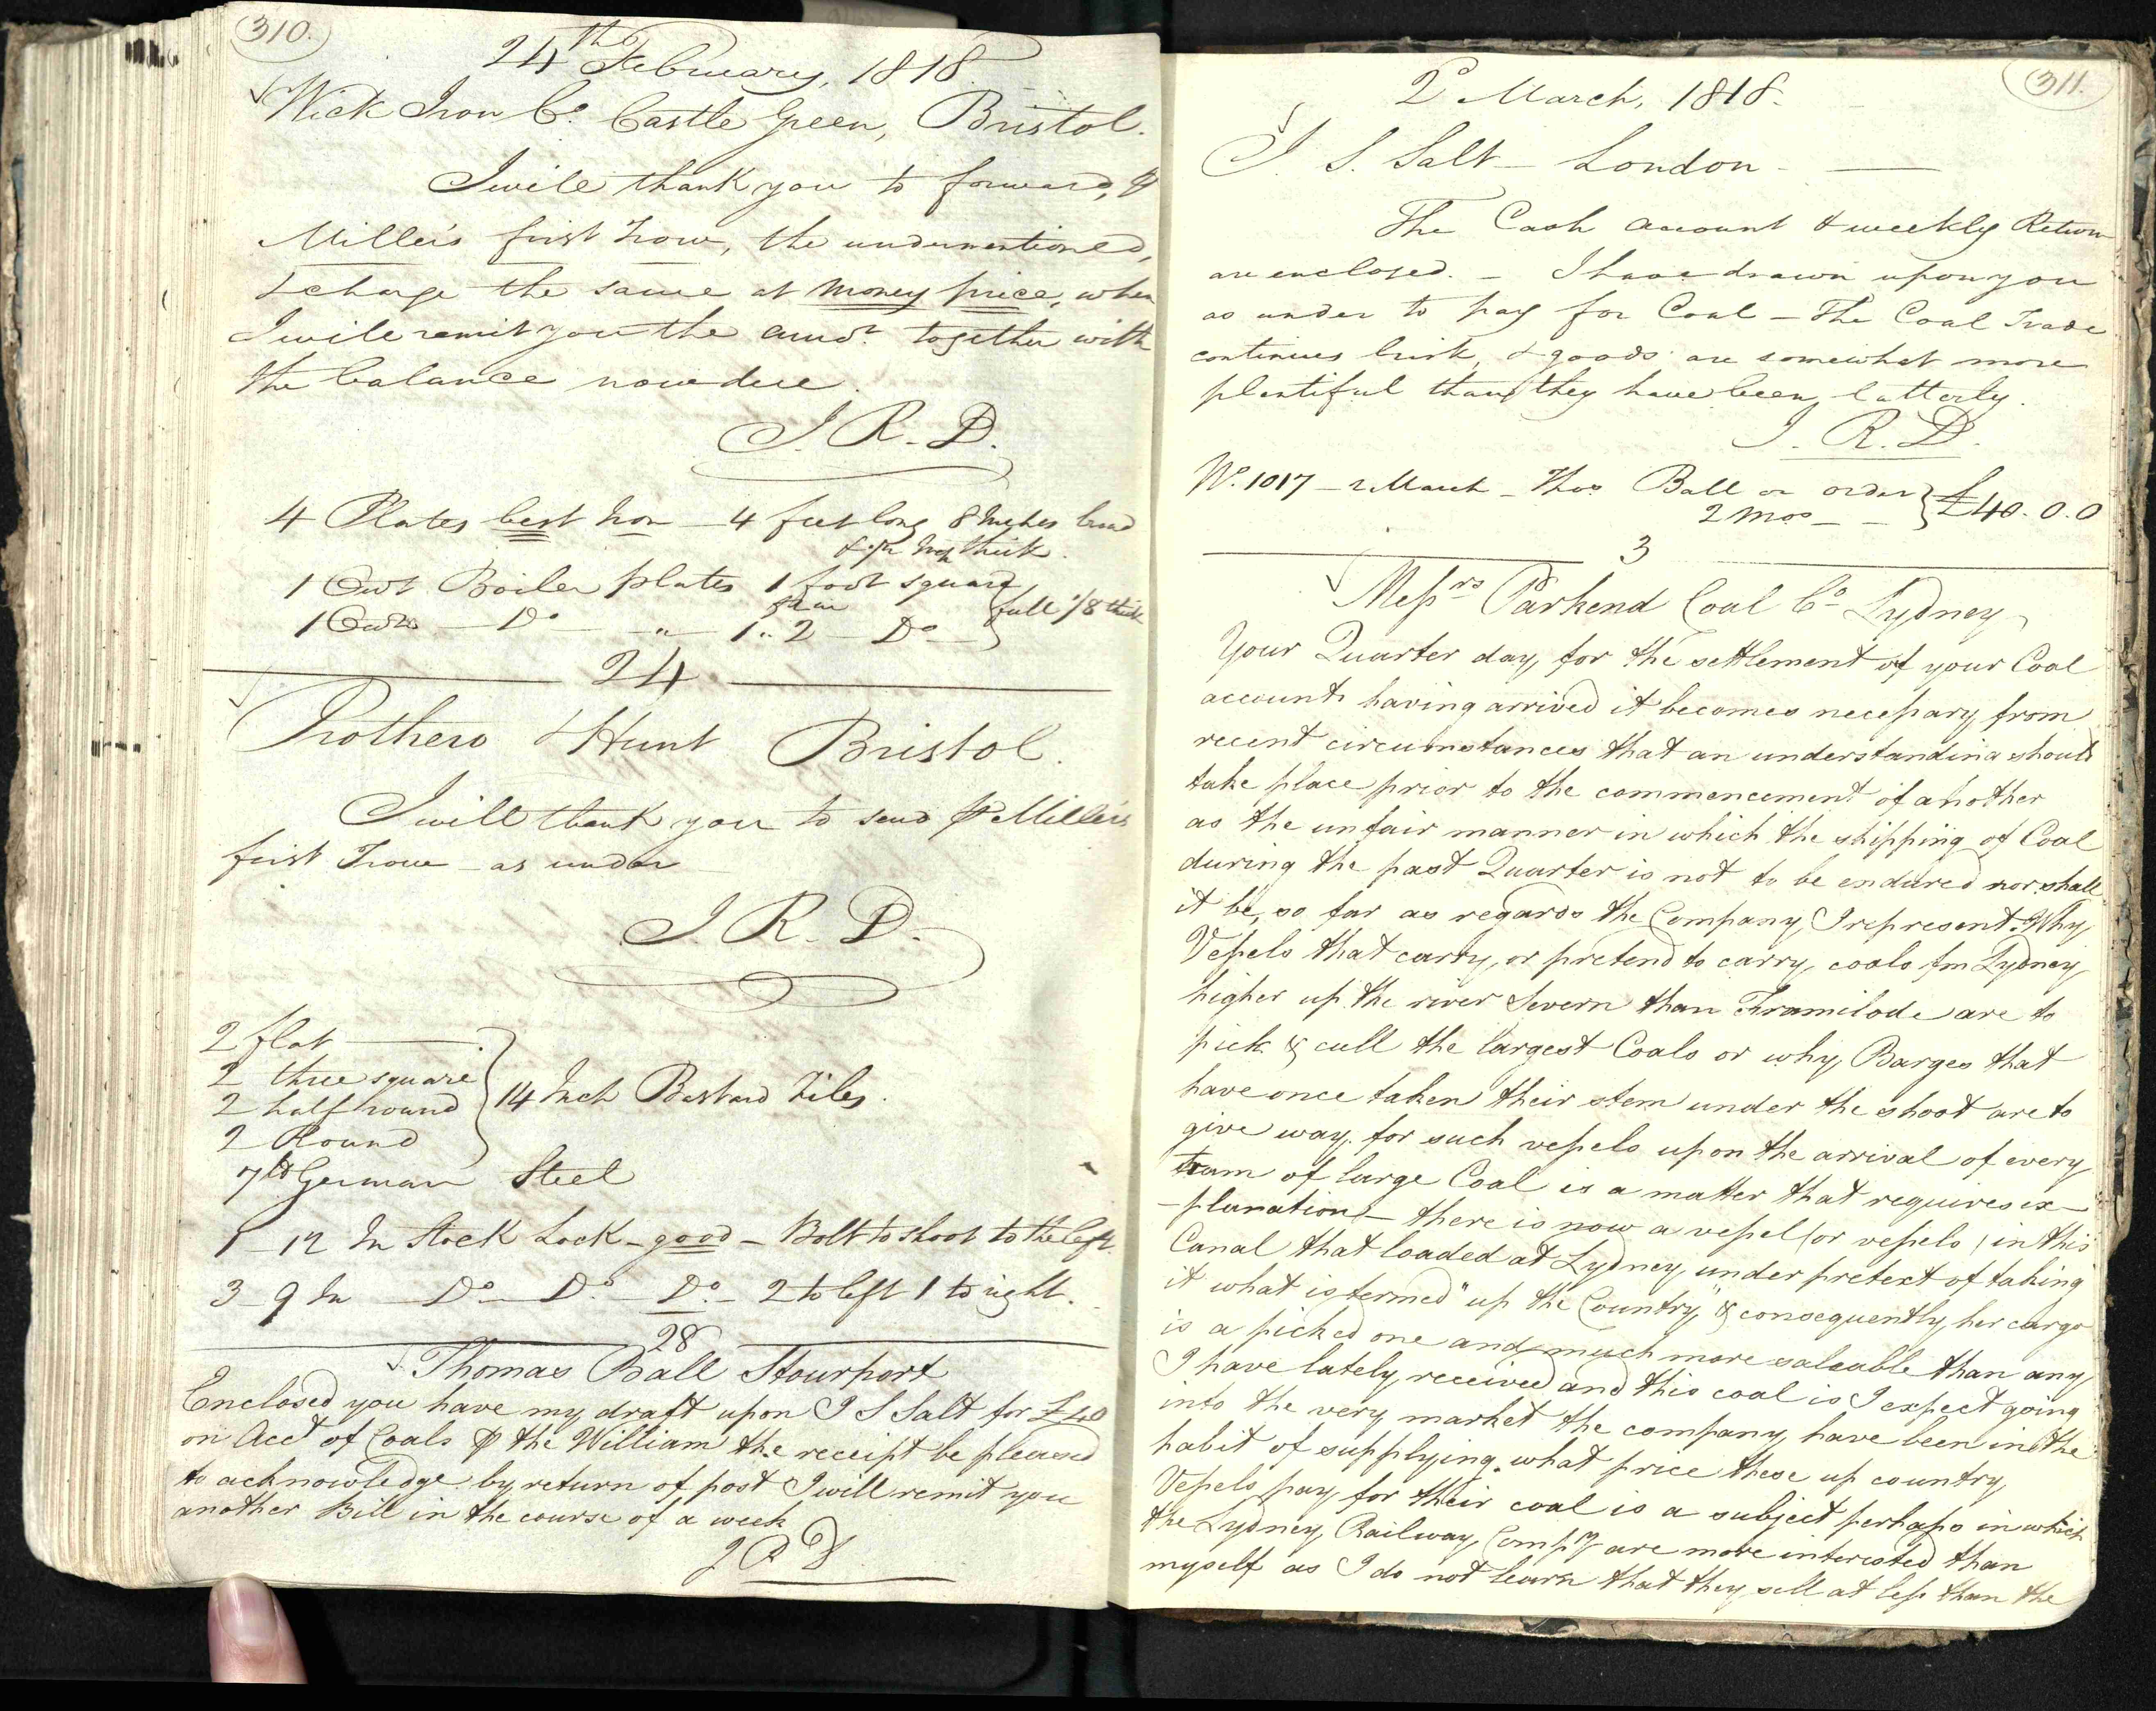 310.
24th February, 1818
Wick Iron Co. Castle Green, Bristol.
I will thank you to forward, ⅌
Miller's first Trow, the undermentioned,
& charge the same at money price, when
I will remit you the amot. together with
the balance now due.
I. R. D.
4 Plates best Iron - 4 feet long 8 Inches broad
thick.
1 Cwt Boiler plates 1 foot square
full 1/8 thick
1 Cwt - Do - " - 1 .. 2 - Do -
24
Prothero & Hunt Bristol.
I will thank you to send ⅌ Miller's
first Trow - as under
I. R. D.
2 flat
2 three square
2 half round
2 Round
14 Inch Bastard Files.
7 lb German Steel
1 - 12 In Stock Lock - good - Bolt to shoot to the left.
3 - 9 In - Do - Do. - Do. - 2 to left 1 to right.
28
Thomas Ball Stourport
Enclosed you have my draft upon I S Salt for £40
on Acct of Coals ⅌ the William the receipt be pleased
to acknowledge by return of post I will remit you
another Bill in the course of a week
I R D
311.
2d March, 1818.
I. S. Salt - London -
The Cash account & weekly Return
are enclosed. - I have drawn upon you
as under to pay for Coal - The Coal Trade
continues brisk, & goods are somewhat more
plentiful than they have been latterly.
I. R. D.
No. 1017 - 2 March - Thos Ball or order
2 mos - -
£40. 0. 0
3
Messrs Parkend Coal Co Lydney
Your Quarter day, for the settlement of your Coal
accounts having arrived it becomes necessary from
recent circumstances that an understanding should
take place prior to the commencement of another
as the unfair manner in which the shipping of Coal
during the past Quarter is not to be endured nor shall
it be, so far as regards the Company I represent. Why
Vessels that carry, or pretend to carry, coals fm Lydney
higher up the river Severn than Framilode are to
pick & cull the largest Coals or why Barges that
have once taken their stem under the shoot are to
give way for such vessels upon the arrival of every
tram of large Coal is a matter that requires ex-
-planation - there is now a vessel (or vessels) in this
Canal that loaded at Lydney under pretext of taking
it what is termed "up the Country," & consequently, her cargo
is a picked one and much more saleable than any
I have lately received and this coal is I expect going
into the very market the company have been in the
habit of supplying. what price these up country
Vessels pay for their coal is a subject perhaps in which
the Lydney Railway Compy are more interested than
myself as I do not learn that they sell at less than the